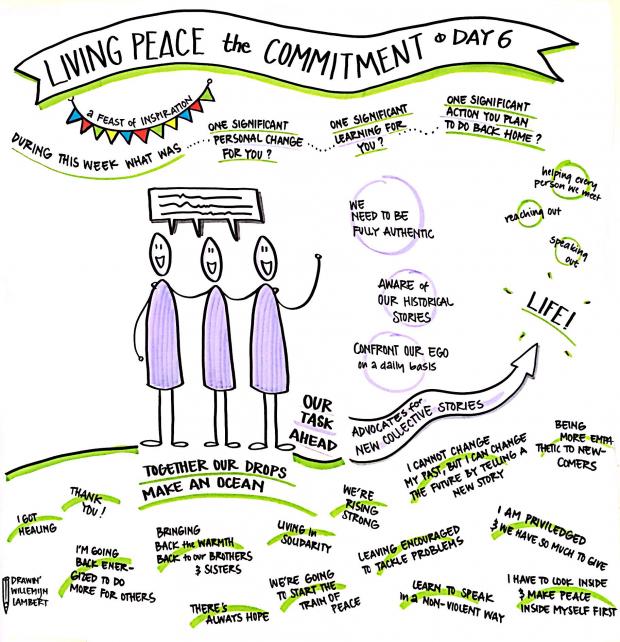 LIVING PEACE the COMMITMENT • DAY 6
a FEAST of INSPIRATION
DURING THIS WEEK WHAT WAS
ONE SIGNIFICANT
PERSONAL CHANGE
FOR YOU?
ONE SIGNIFICANT
LEARNING FOR
YOU?
ONE SIGNIFICANT
ACTION YOU PLAN
TO DO BACK HOME?
helping every
person we meet
reaching out
speaking
out
LIFE!
WE
NEED TO BE
FULLY AUTHENTIC
AWARE of
OUR HISTORICAL
STORIES
CONFRONT OUR EGO
on a daily basis
OUR
TASK
AHEAD
ADVOCATES for
NEW COLLECTIVE STORIES
TOGETHER OUR DROPS
MAKE AN OCEAN
I GOT
HEALING
THANK
YOU!
I'M GOING
BACK ENER-
GIZED TO DO
MORE FOR OTHERS
BRINGING
BACK the WARMTH
BACK to our BROTHERS
& SISTERS
THERE'S
ALWAYS HOPE
LIVING in
SOLIDARITY
WE'RE GOING
TO START THE
TRAIN OF
PEACE
WE'RE
RISING
STRONG
LEAVING ENCOURAGED
TO TACKLE PROBLEMS
I CANNOT CHANGE
MY PAST, BUT I CAN CHANGE
THE FUTURE BY TELLING A
NEW STORY
LEARN TO SPEAK
in a NON-VIOLENT WAY
BEING
MORE EMPA
THETIC TO NEW-
COMERS
I AM PRIVILEDGED
& WE HAVE SO MUCH TO GIVE
I HAVE TO LOOK INSIDE
& MAKE PEACE
INSIDE MYSELF FIRST
DRAWIN'
WILLEMIJN
LAMBERT